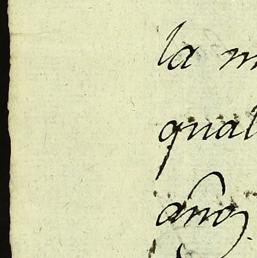 la m
qual
años